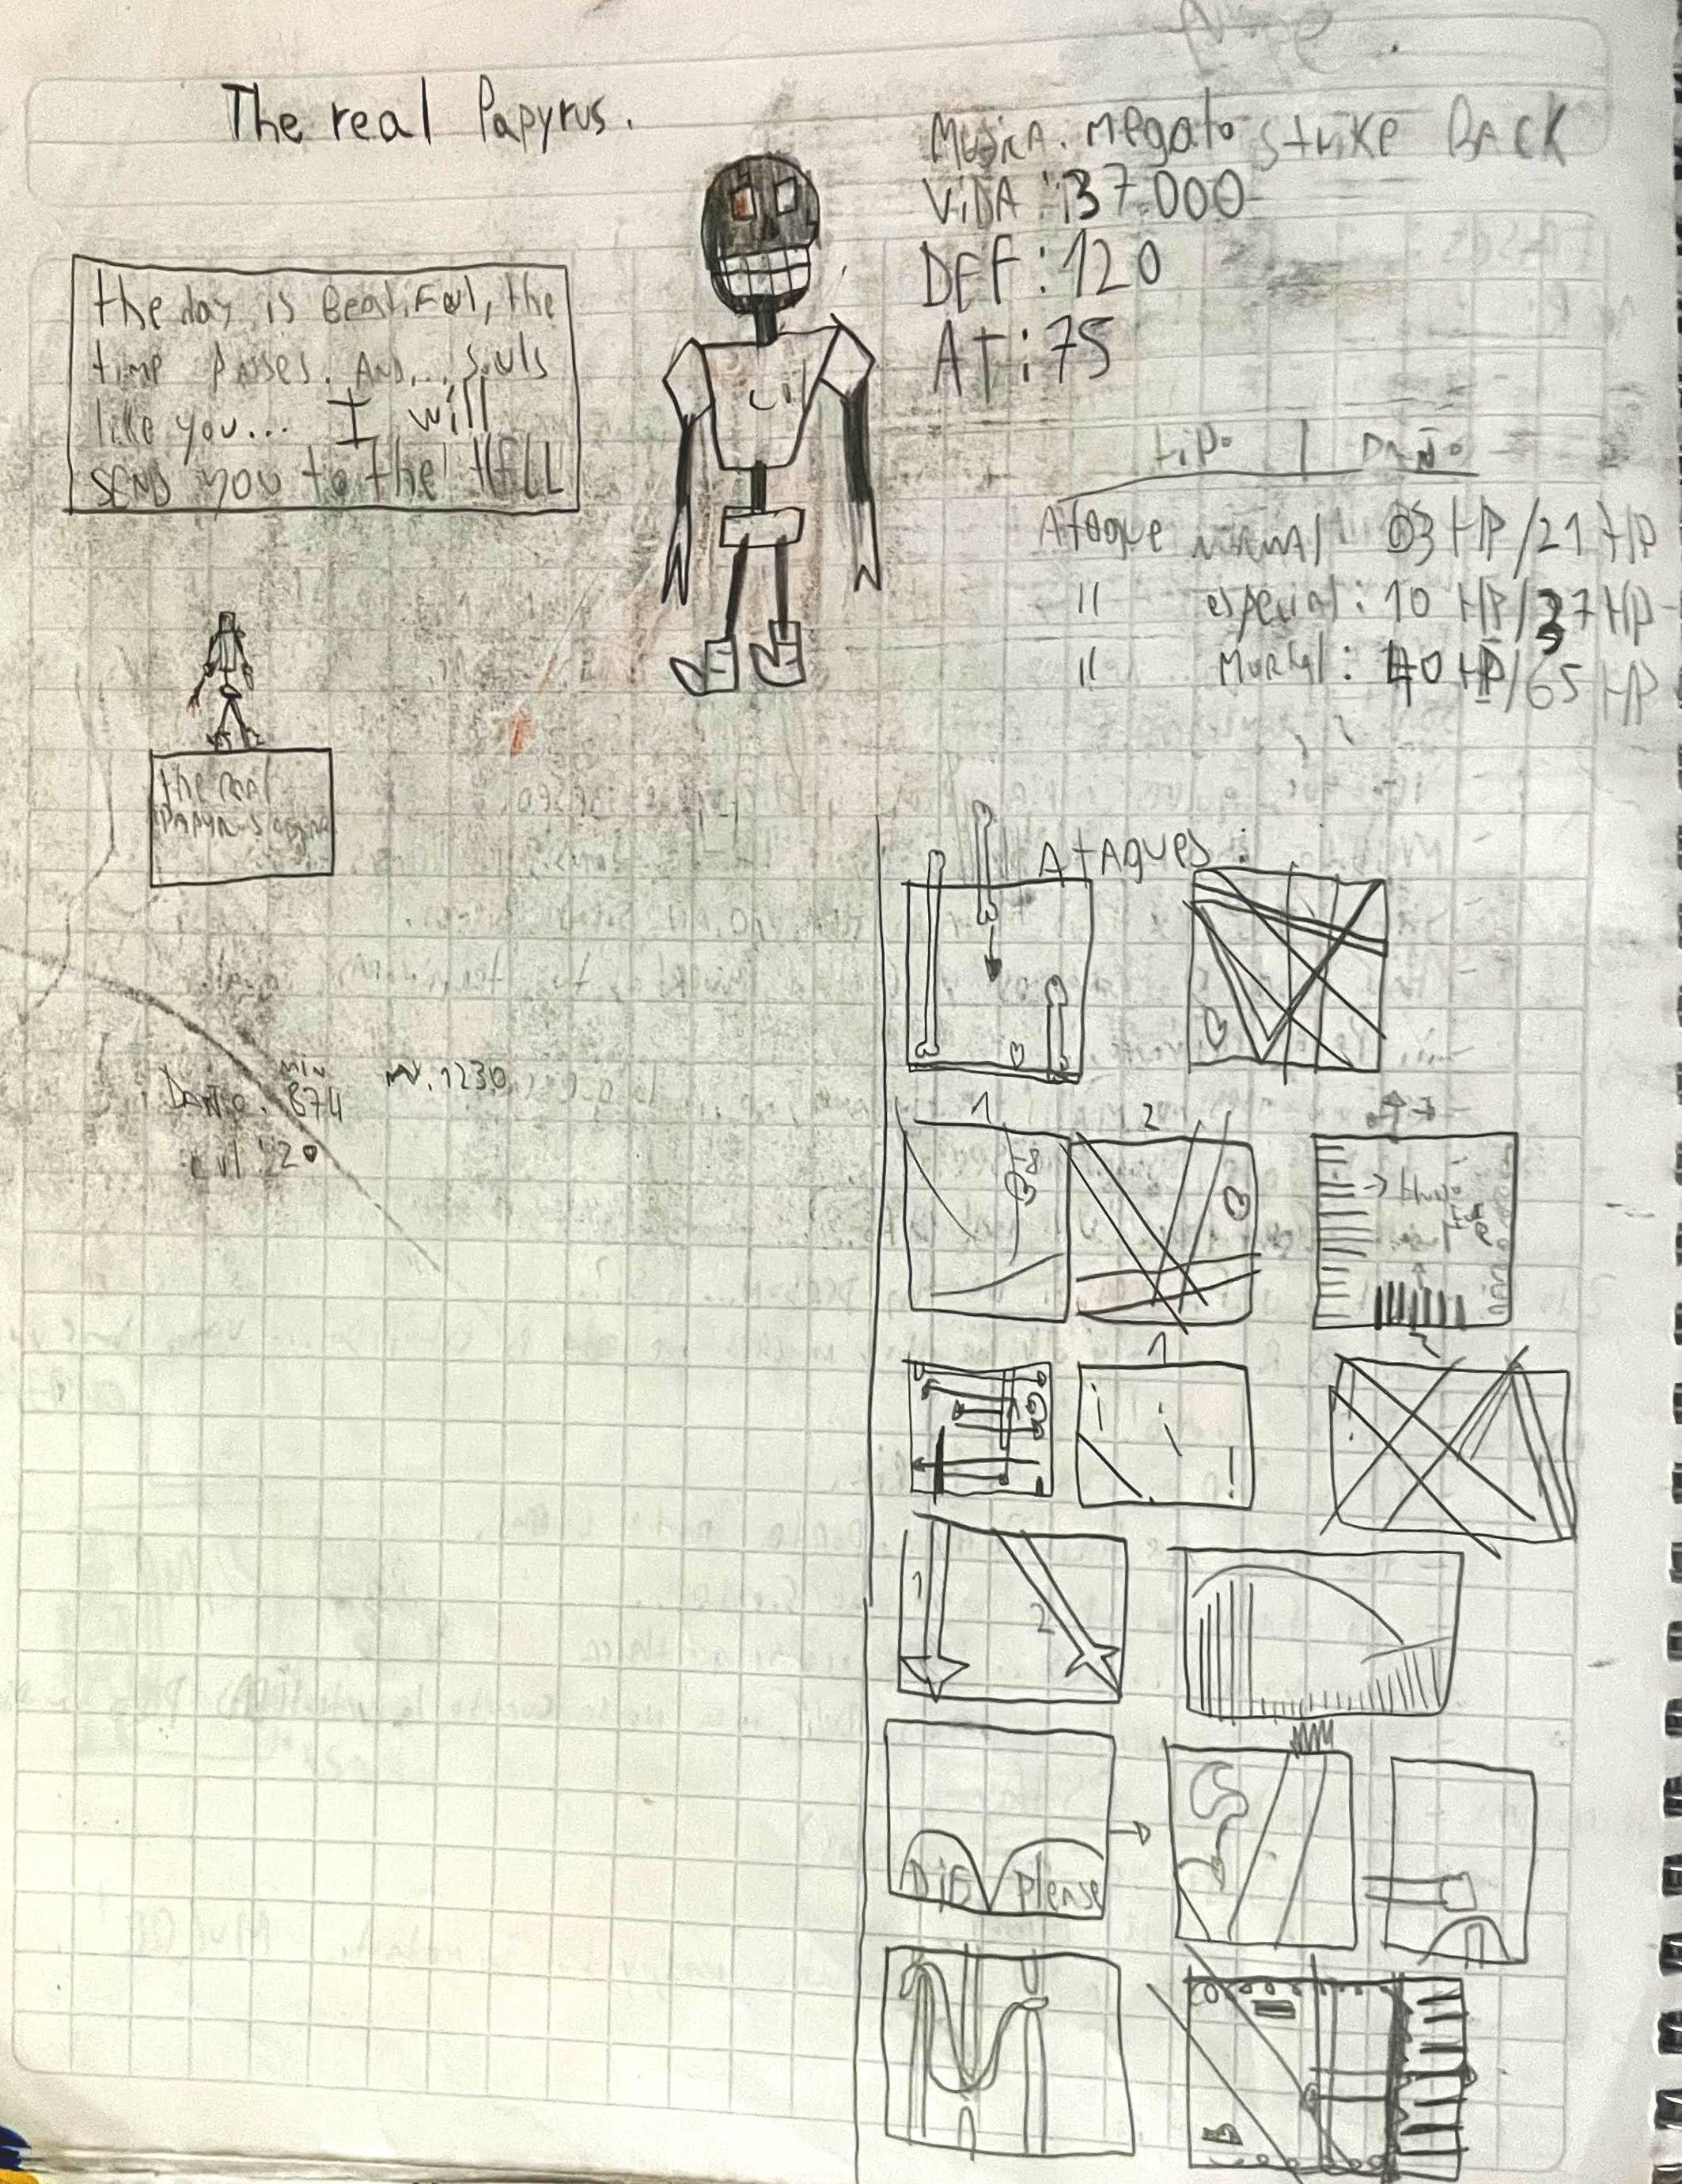 The real Papyrus.
Musica. Megalo Strike BACK
ViDA : 37.000
DEF : 120
At : 75
the day is Beatiful, the
time passes. And... souls
like you... I will
SEND you to the HELL
tipo | Daño
Ataque normal 03 HP/21 HP
" especial: 10 HP/37 HP
" Mortal: 40 HP/65 HP
the real
PAPYRUS
AtAques:
min
Daño. 874 1230
Lvl 20
1
2
1
2
1
2
DiE Please